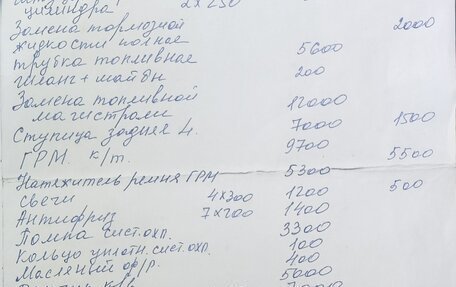 цилиндра 2 х 250
Замена тормозной 2000
жидкости полное
трубка топливная 5600
шланг + 200
Замена топливной 12000
магистрали 1500
Ступица задняя L. 7000
ГРМ. к/т. 9700 5500
Натяжитель ремня ГРМ 5300
свечи 4х300 1200 500
Антифриз 7х200 1400
Помпа сист.охл. 3300
Кольцо уплотн. сист.охл. 100
Масляный ф/р. 400
5000